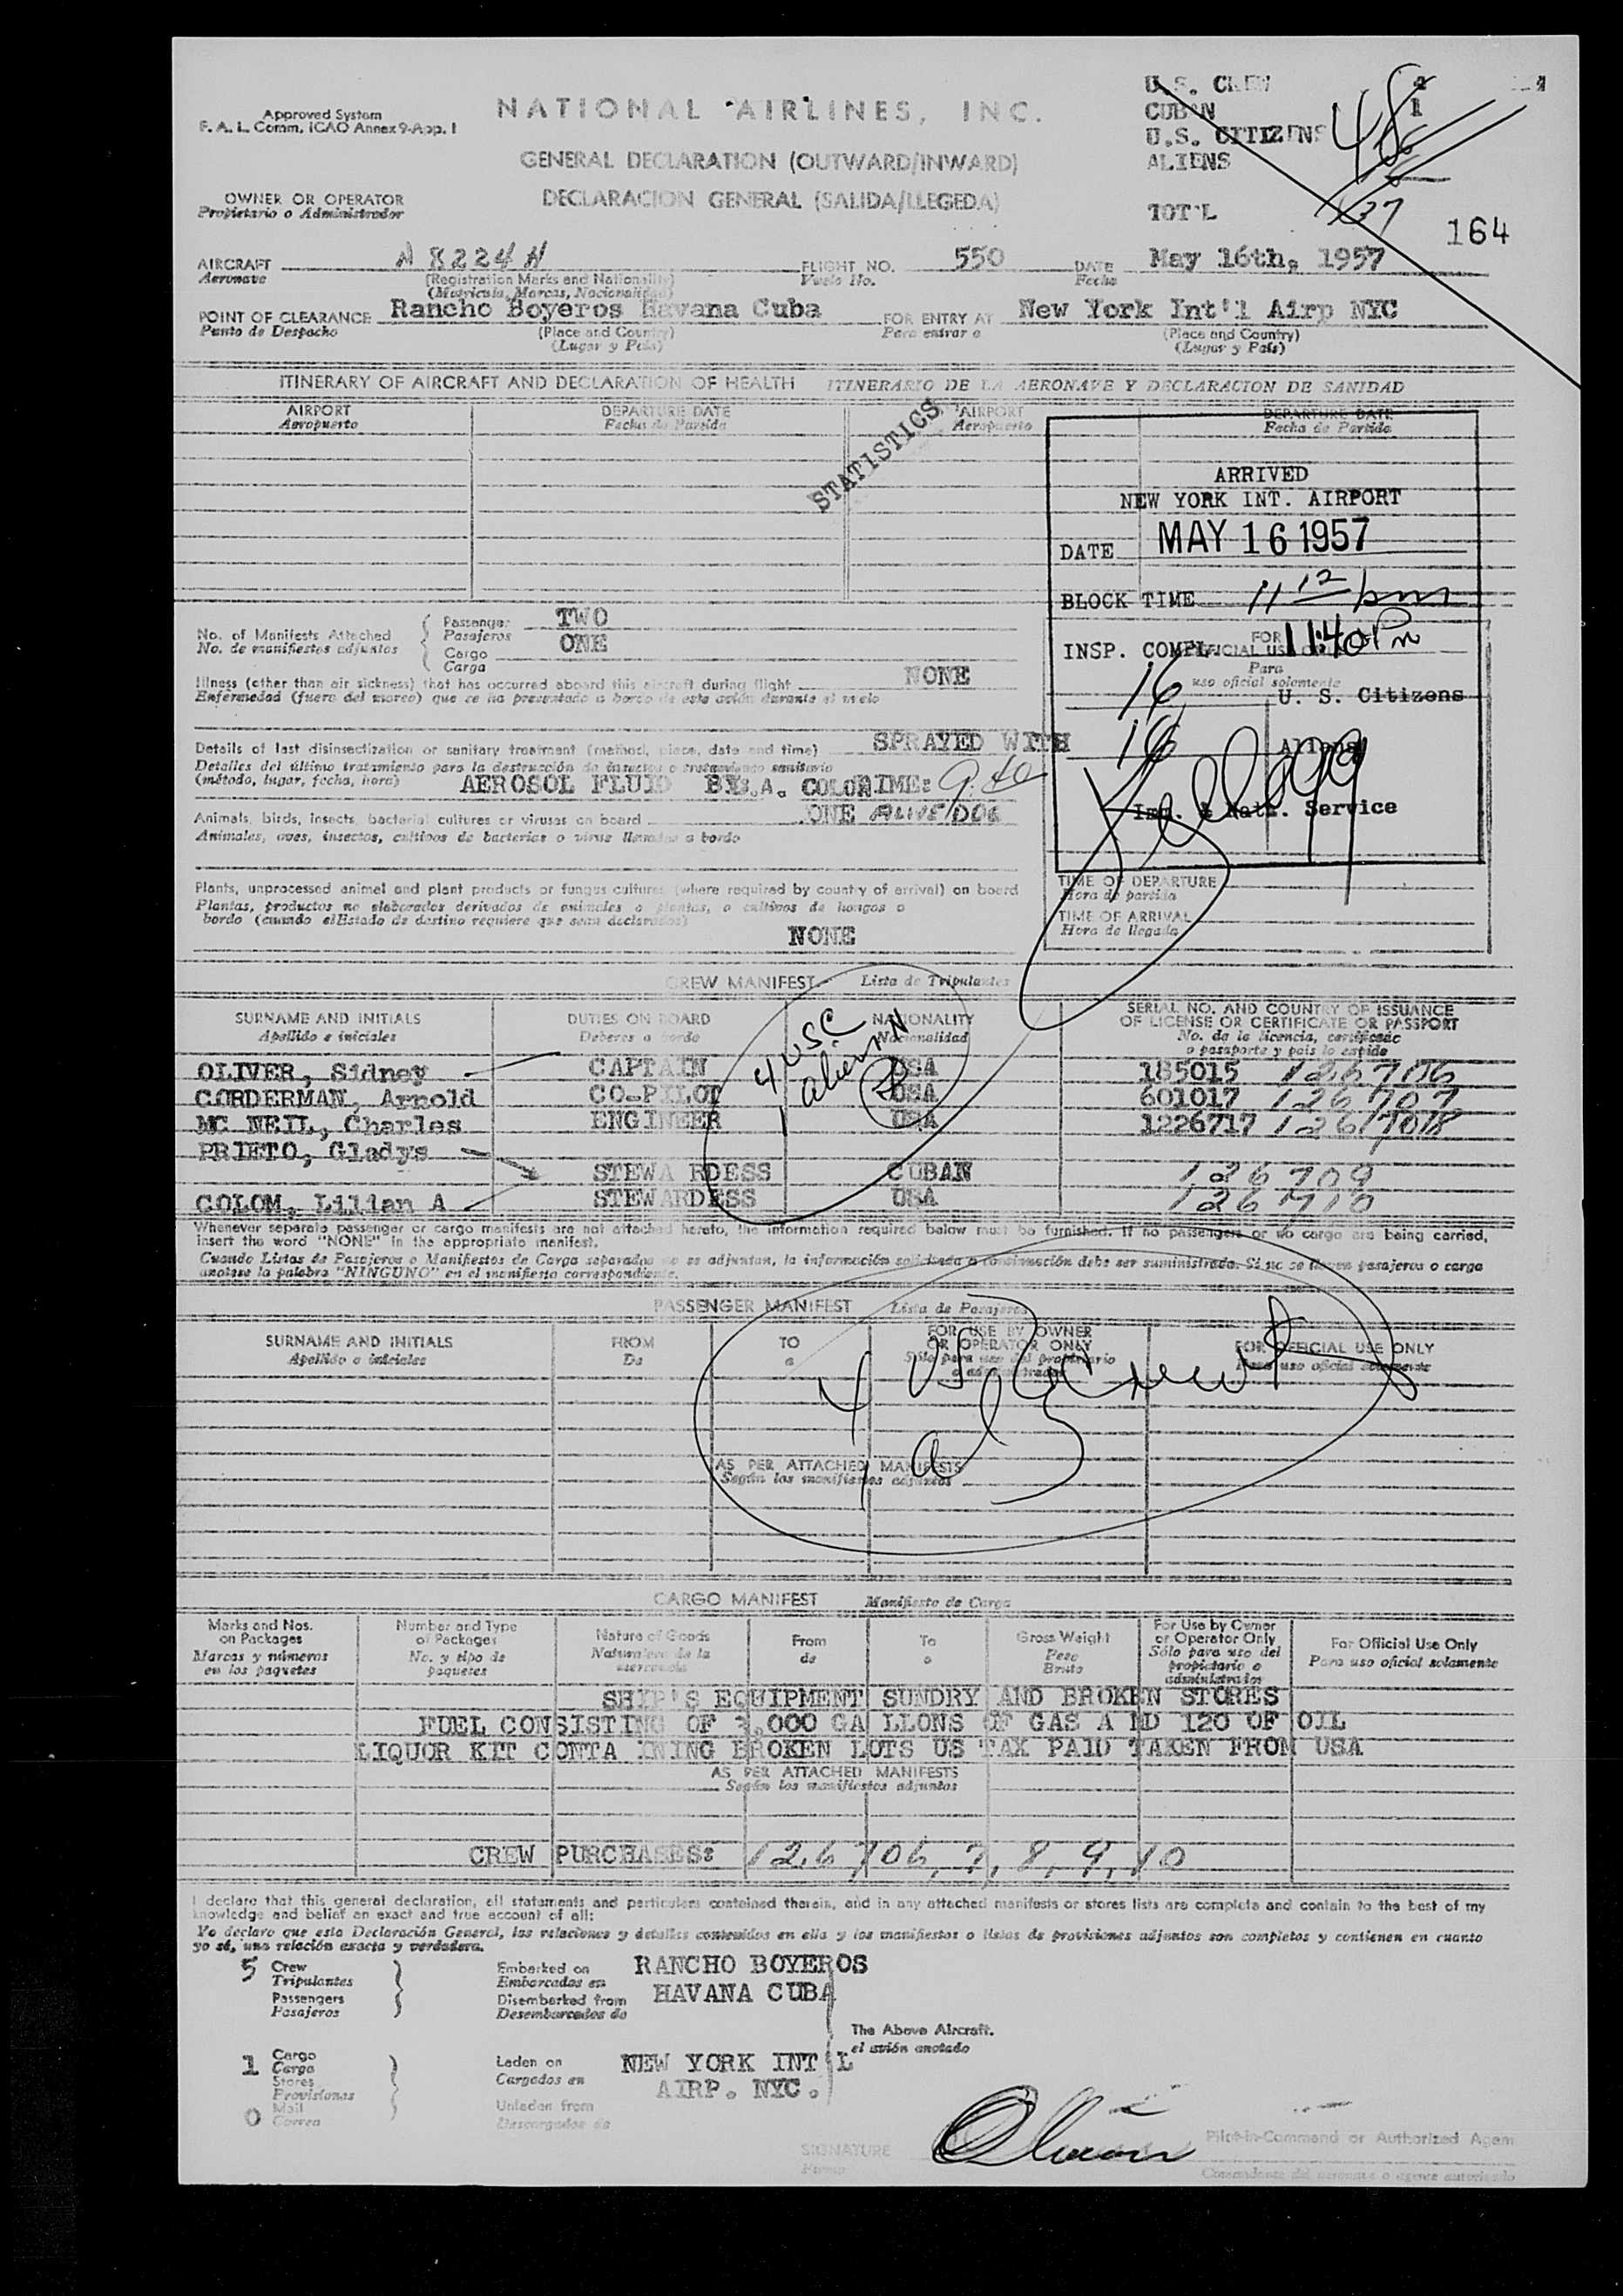 Approved System
F. A. L. Comm. ICAO Annex 9-App. I
NATIONAL AIRLINES, INC.
GENERAL DECLARATION (OUTWARD/INWARD)
DECLARACION GENERAL (SALIDA/LLEGEDA)
U.S. CREW 4
CUBAN 1
U.S. CITIZENS
ALIENS
TOT'L 37
164
OWNER OR OPERATOR
Propietario o Administrador
AIRCRAFT N 8224 H FLIGHT NO. 550 DATE May 16th, 1957
Aeronave (Registration Marks and Nationality) Vuelo No. Fecha
(Matricula, Marcas, Nacionalidad)
POINT OF CLEARANCE Rancho Boyeros Havana Cuba FOR ENTRY AT New York Int'l Airp NYC
Punto de Despacho (Place and Country) Para entrar a (Place and Country)
(Lugar y País) (Lugar y País)
ITINERARY OF AIRCRAFT AND DECLARATION OF HEALTH ITINERARIO DE LA AERONAVE Y DECLARACION DE SANIDAD
AIRPORT DEPARTURE DATE AIRPORT DEPARTURE DATE
Aeropuerto Fecha de Partida Aeropuerto Fecha de Partida
STATISTICS
ARRIVED
NEW YORK INT. AIRPORT
DATE MAY 16 1957
BLOCK TIME 11 12 pm
INSP. COMPL. 11:40 Pm
FOR OFFICIAL USE ONLY
Para
uso oficial solamente
16 U. S. Citizens
16 Aliens
Kellogg
Imm. & Natz. Service
No. of Manifests Attached Passenger TWO
No. de manifiestos adjuntos Pasajeros
Cargo ONE
Carga
Illness (other than air sickness) that has occurred aboard this aircraft during flight NONE
Enfermedad (fuera del mareo) que se ha presentado a bordo de este avión durante el vuelo
Details of last disinsectization or sanitary treatment (method, place, date and time) SPRAYED WITH
Detalles del último tratamiento para la destrucción de insectos o tratamiento sanitario
(método, lugar, fecha, hora) AEROSOL FLUID BY L.A. COLOM TIME: 9:40
Animals, birds, insects, bacterial cultures or viruses on board ONE ALIVE DOG
Animales, aves, insectos, cultivos de bacterias o virus llevados a bordo
Plants, unprocessed animal and plant products or fungus cultures (where required by country of arrival) on board
Plantas, productos no elaborados derivados de animales o plantas, o cultivos de hongos a
bordo (cuando el Estado de destino requiere que sean declarados)
NONE
TIME OF DEPARTURE
Hora de partida
TIME OF ARRIVAL
Hora de llegada
CREW MANIFEST Lista de Tripulantes
SURNAME AND INITIALS DUTIES ON BOARD NATIONALITY SERIAL NO. AND COUNTRY OF ISSUANCE
OF LICENSE OR CERTIFICATE OR PASSPORT
Apellido e iniciales Deberes a bordo Nacionalidad No. de la licencia, certificado
o pasaporte y país lo expide
4 USC
1 alien
OLIVER, Sidney CAPTAIN USA 185015 126706
CORDERMAN, Arnold CO-PILOT USA 601017 126707
MC NEIL, Charles ENGINEER USA 1226717 126708
PRIETO, Gladys STEWARDESS CUBAN 126709
COLOM, Lilian A STEWARDESS USA 126710
Whenever separate passenger or cargo manifests are not attached hereto, the information required below must be furnished. If no passengers or no cargo are being carried,
insert the word "NONE" in the appropriate manifest.
Cuando Listas de Pasajeros o Manifiestos de Carga separados no se adjuntan, la información solicitada a continuación debe ser suministrada. Si no se llevan pasajeros o carga
anótese la palabra "NINGUNO" en el manifiesto correspondiente.
PASSENGER MANIFEST Lista de Pasajeros
SURNAME AND INITIALS FROM TO FOR USE BY OWNER OR OPERATOR ONLY FOR OFFICIAL USE ONLY
Apellido e iniciales De a Sólo para uso del propietario o administrador Para uso oficial solamente
4 USC crew
1 al
AS PER ATTACHED MANIFESTS
Según los manifiestos adjuntos
CARGO MANIFEST Manifiesto de Carga
Marks and Nos. on Packages Number and Type of Packages Nature of Goods From To Gross Weight For Use by Owner or Operator Only For Official Use Only
Marcas y números en los paquetes No. y tipo de paquetes Naturaleza de la mercancía de a Peso Bruto Sólo para uso del propietario o administrador Para uso oficial solamente
SHIP'S EQUIPMENT SUNDRY AND BROKEN STORES
FUEL CONSISTING OF 3,000 GALLONS OF GAS AND 120 OF OIL
LIQUOR KIT CONTAINING BROKEN LOTS US TAX PAID TAKEN FROM USA
AS PER ATTACHED MANIFESTS
Según los manifiestos adjuntos
CREW PURCHASES: 126706, 7, 8, 9, 10
I declare that this general declaration, all statements and particulars contained therein, and in any attached manifests or stores lists are complete and contain to the best of my
knowledge and belief an exact and true account of all:
Yo declaro que esta Declaración General, las relaciones y detalles contenidos en ella y los manifiestos o listas de provisiones adjuntos son completos y contienen en cuanto
yo sé, una relación exacta y verdadera.
5 Crew Embarked on RANCHO BOYEROS
Tripulantes Embarcados en
Passengers Disembarked from HAVANA CUBA
Pasajeros Desembarcados de
The Above Aircraft.
el avión anotado
1 Cargo Laden on NEW YORK INT'L
Carga Cargados en AIRP. NYC.
Stores
Provisiones
0 Mail Unladen from
Correo Descargados de
SIGNATURE Oliver Pilot-in-Command or Authorized Agent
Firma Comandante del aeronave o agente autorizado